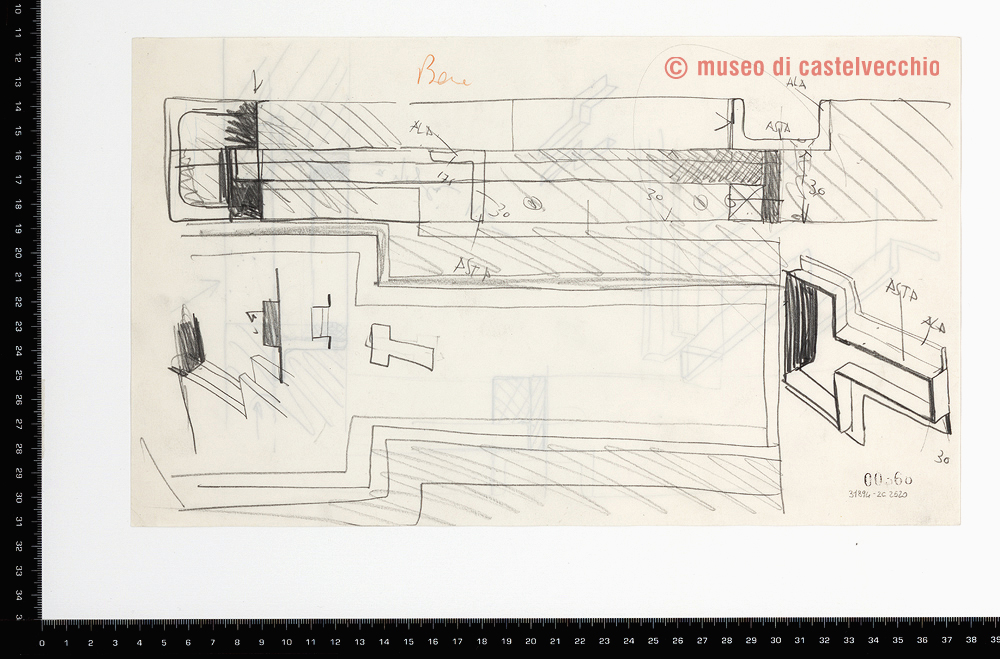 Bene
© museo di castelvecchio
ALA
ASTA
ALA
30
30
30
ASTA
ASTA
ALA
30
31894-2C 2620
10
11
12
13
14
15
16
17
18
19
20
21
22
23
24
25
26
27
28
29
30
31
32
33
0 1 2 3 4 5 6 7 8 9 10 11 12 13 14 15 16 17 18 19 20 21 22 23 24 25 26 27 28 29 30 31 32 33 34 35 36 37 38 39